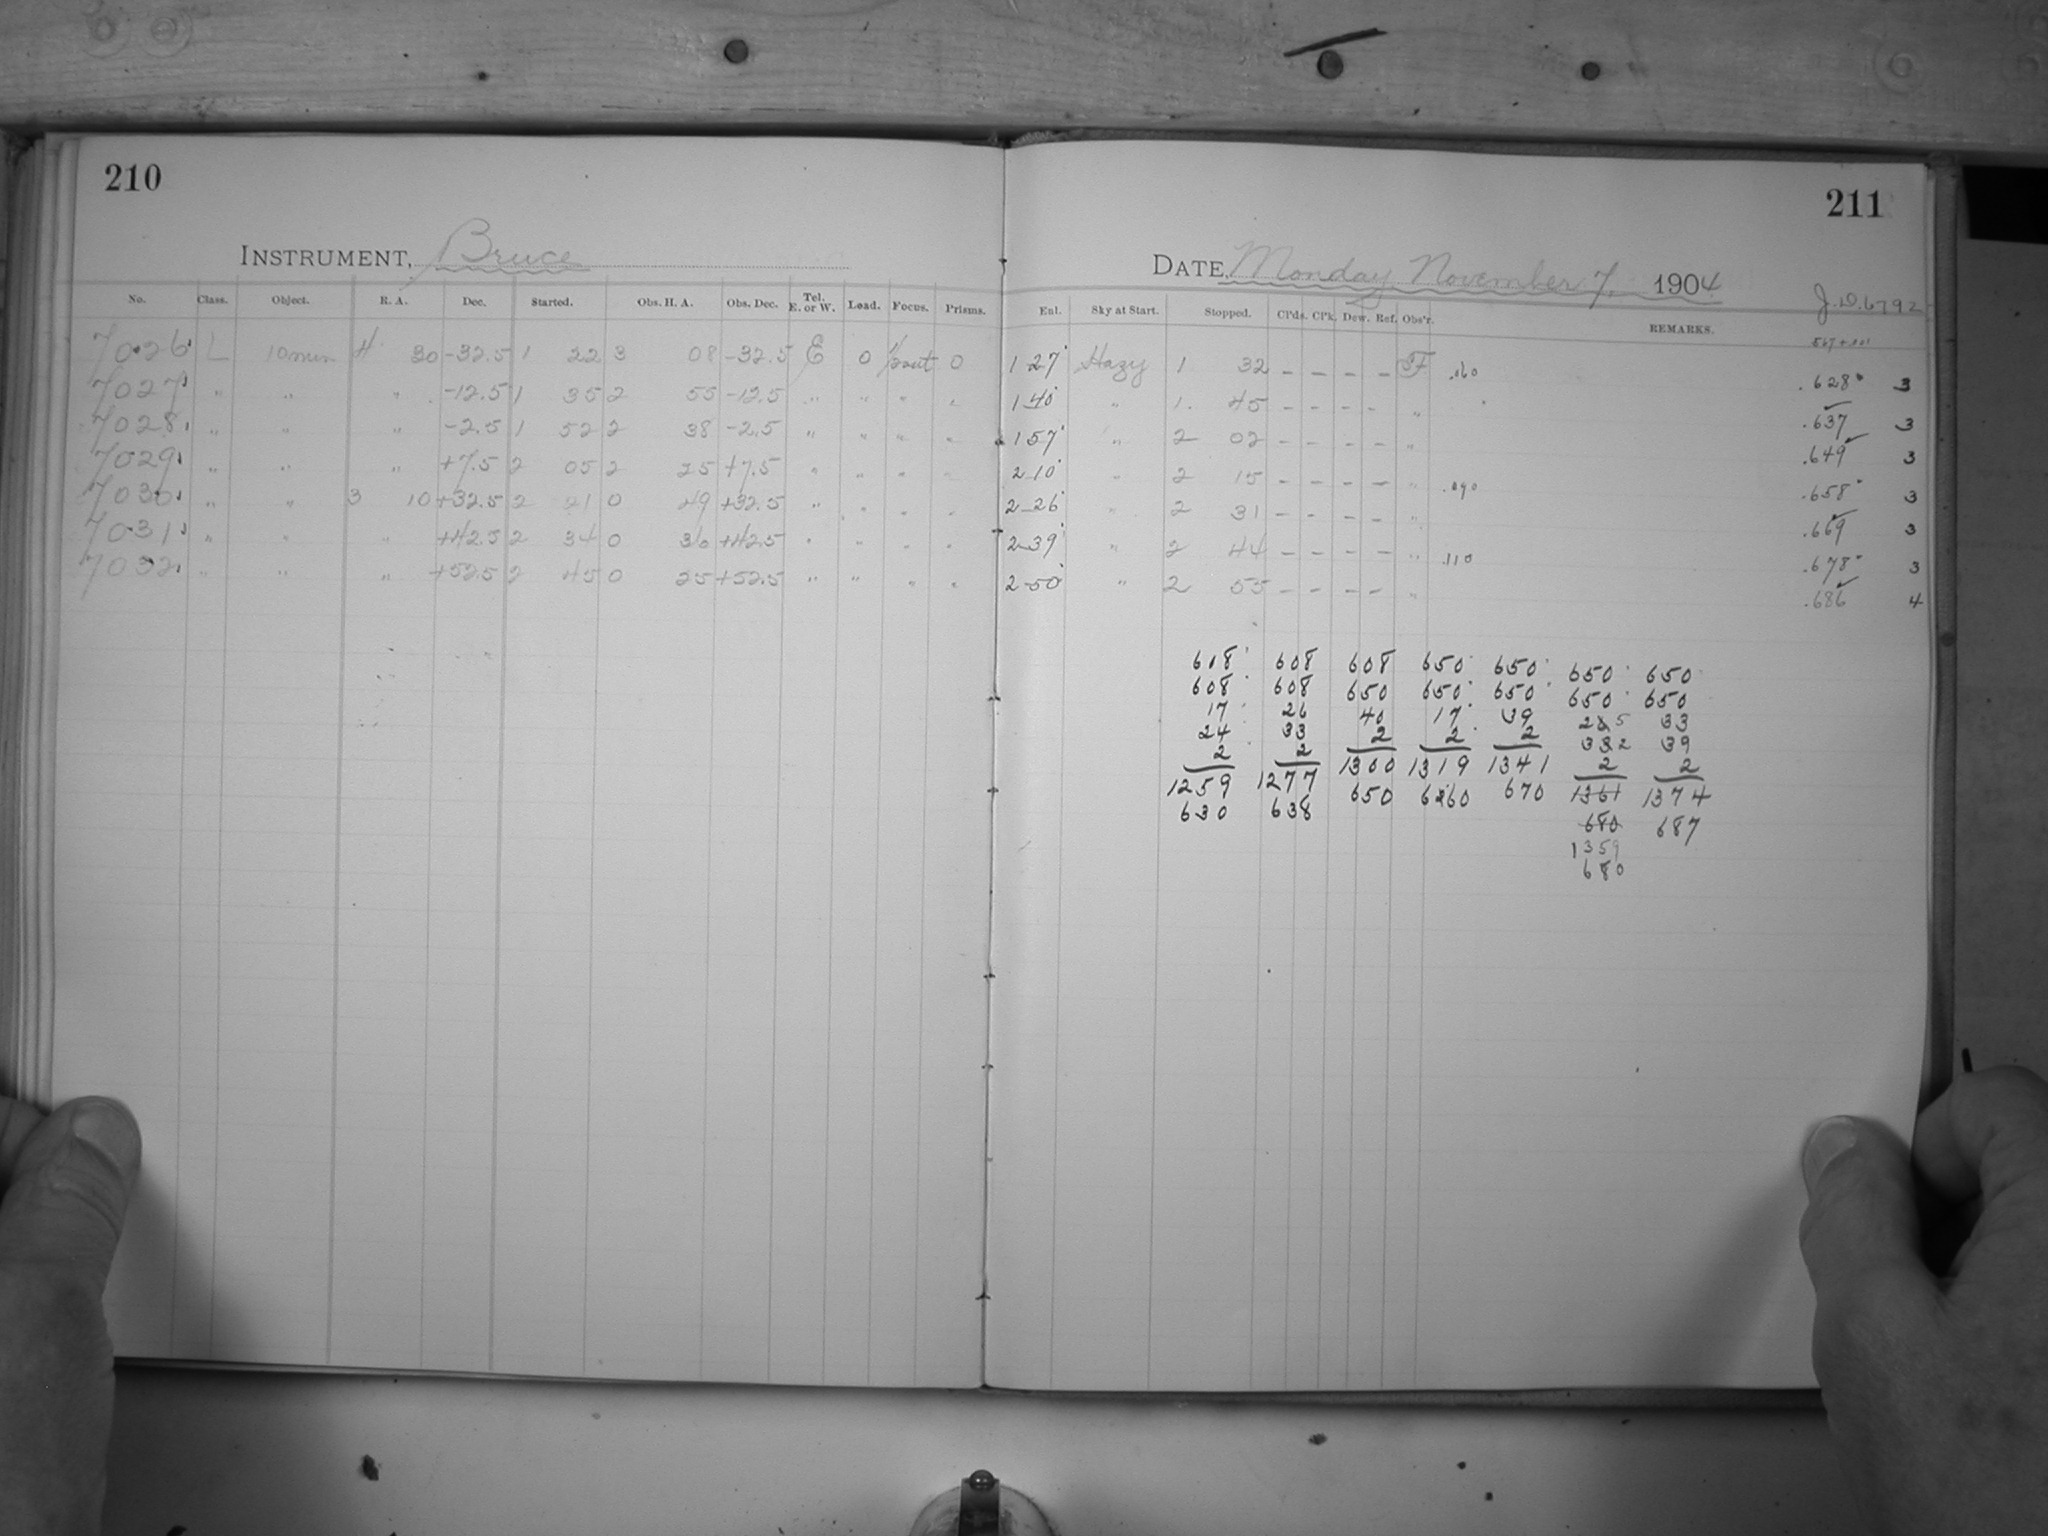 210
211
INSTRUMENT, Bruce
DATE, Monday, November 7, 1904
J.D. 6792
No. Class. Object. R. A. Dec. Started. Obs. H. A. Obs. Dec. Tel. E. or W. Load. Focus. Prisms. Enl. Sky at Start. Stopped. CPds. CPk. Dew. Ref. Obs'r. REMARKS.
7026 L 10 min 4 30 -32.5 1 22 3 08 -32.5 E 0 0 1 27 Hazy 1 32 - - - - F .060 .628 3
7027 " " " -12.5 1 35 2 55 -12.5 " " " " 1 40 " 1 45 - - - - " .637 3
7028 " " " -2.5 1 52 2 38 -2.5 " " " " 1 57 " 2 02 - - - - " .649 3
7029 " " " +7.5 2 05 2 25 +7.5 " " " " 2 10 " 2 15 - - - - " .090 .658 3
7030 " " 3 10 +32.5 2 21 0 49 +32.5 " " " " 2 26 " 2 31 - - - - " .669 3
7031 " " " +42.5 2 34 0 36 +42.5 " " " " 2 39 " 2 44 - - - - " .110 .678 3
7032 " " " +52.5 2 45 0 25 +52.5 " " " " 2 50 " 2 55 - - - - " .686 4
608 608 608 650 650 650 650
608 608 650 650 650 650 650
17 26 40 17 39 33
24 33 2 2 2 39
2 2 1300 1319 1341 2 2
1259 1277 650 670 1361 1374
630 638 680 687
1359
680